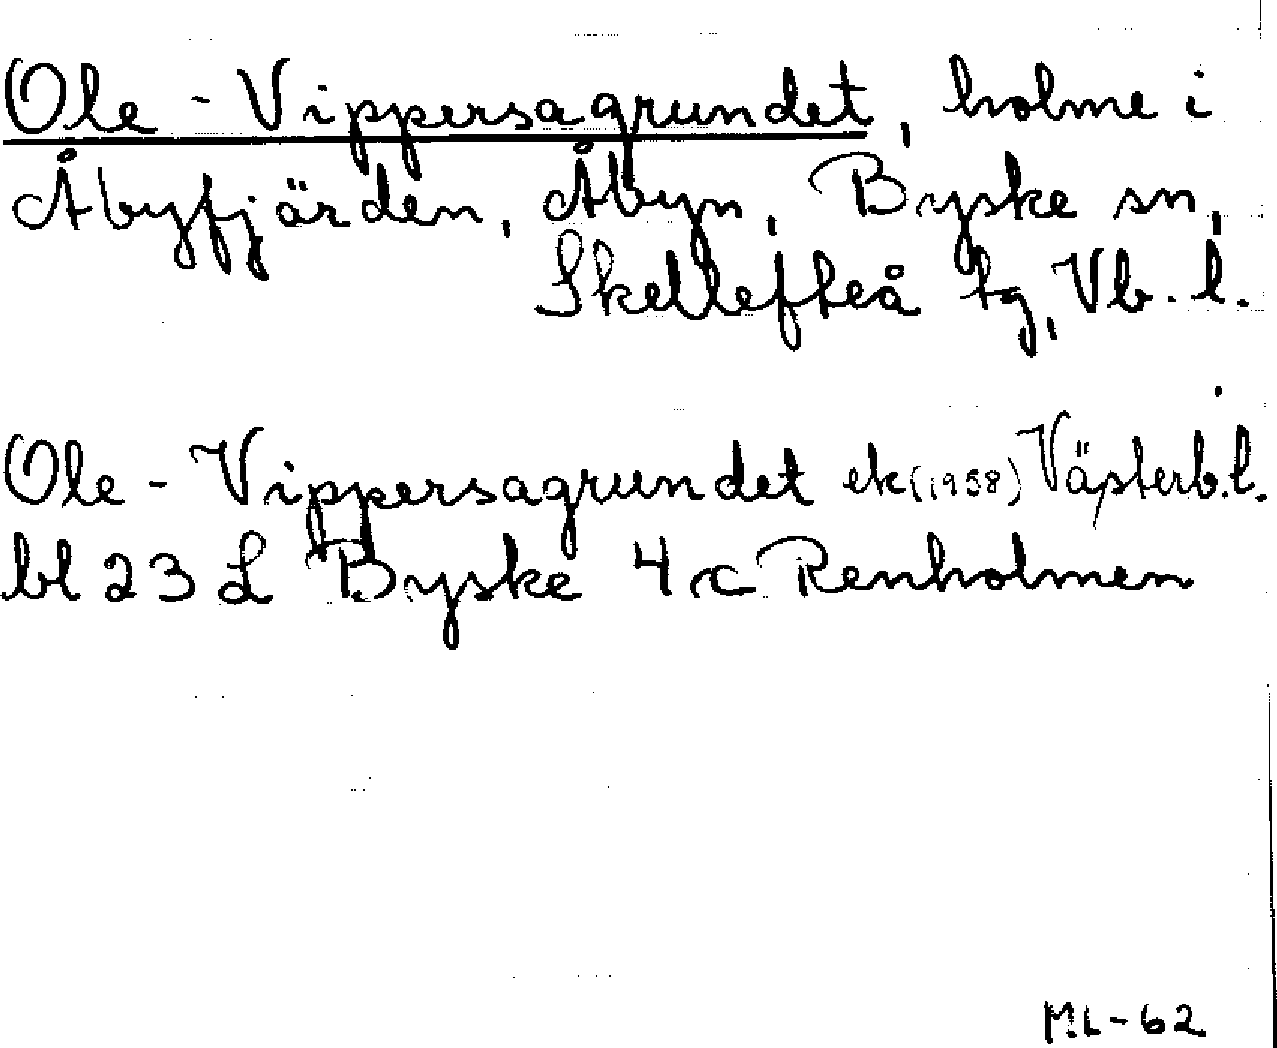 Ole - Vippersagrundet, holme i
Åbyfjärden, Åbyn, Byske sn,
Skellefteå tg, Vb. l.
Ole - Vippersagrundet ek (1958) Västerb.l.
bl 23 L Byske 4 c Renholmen
ML-62